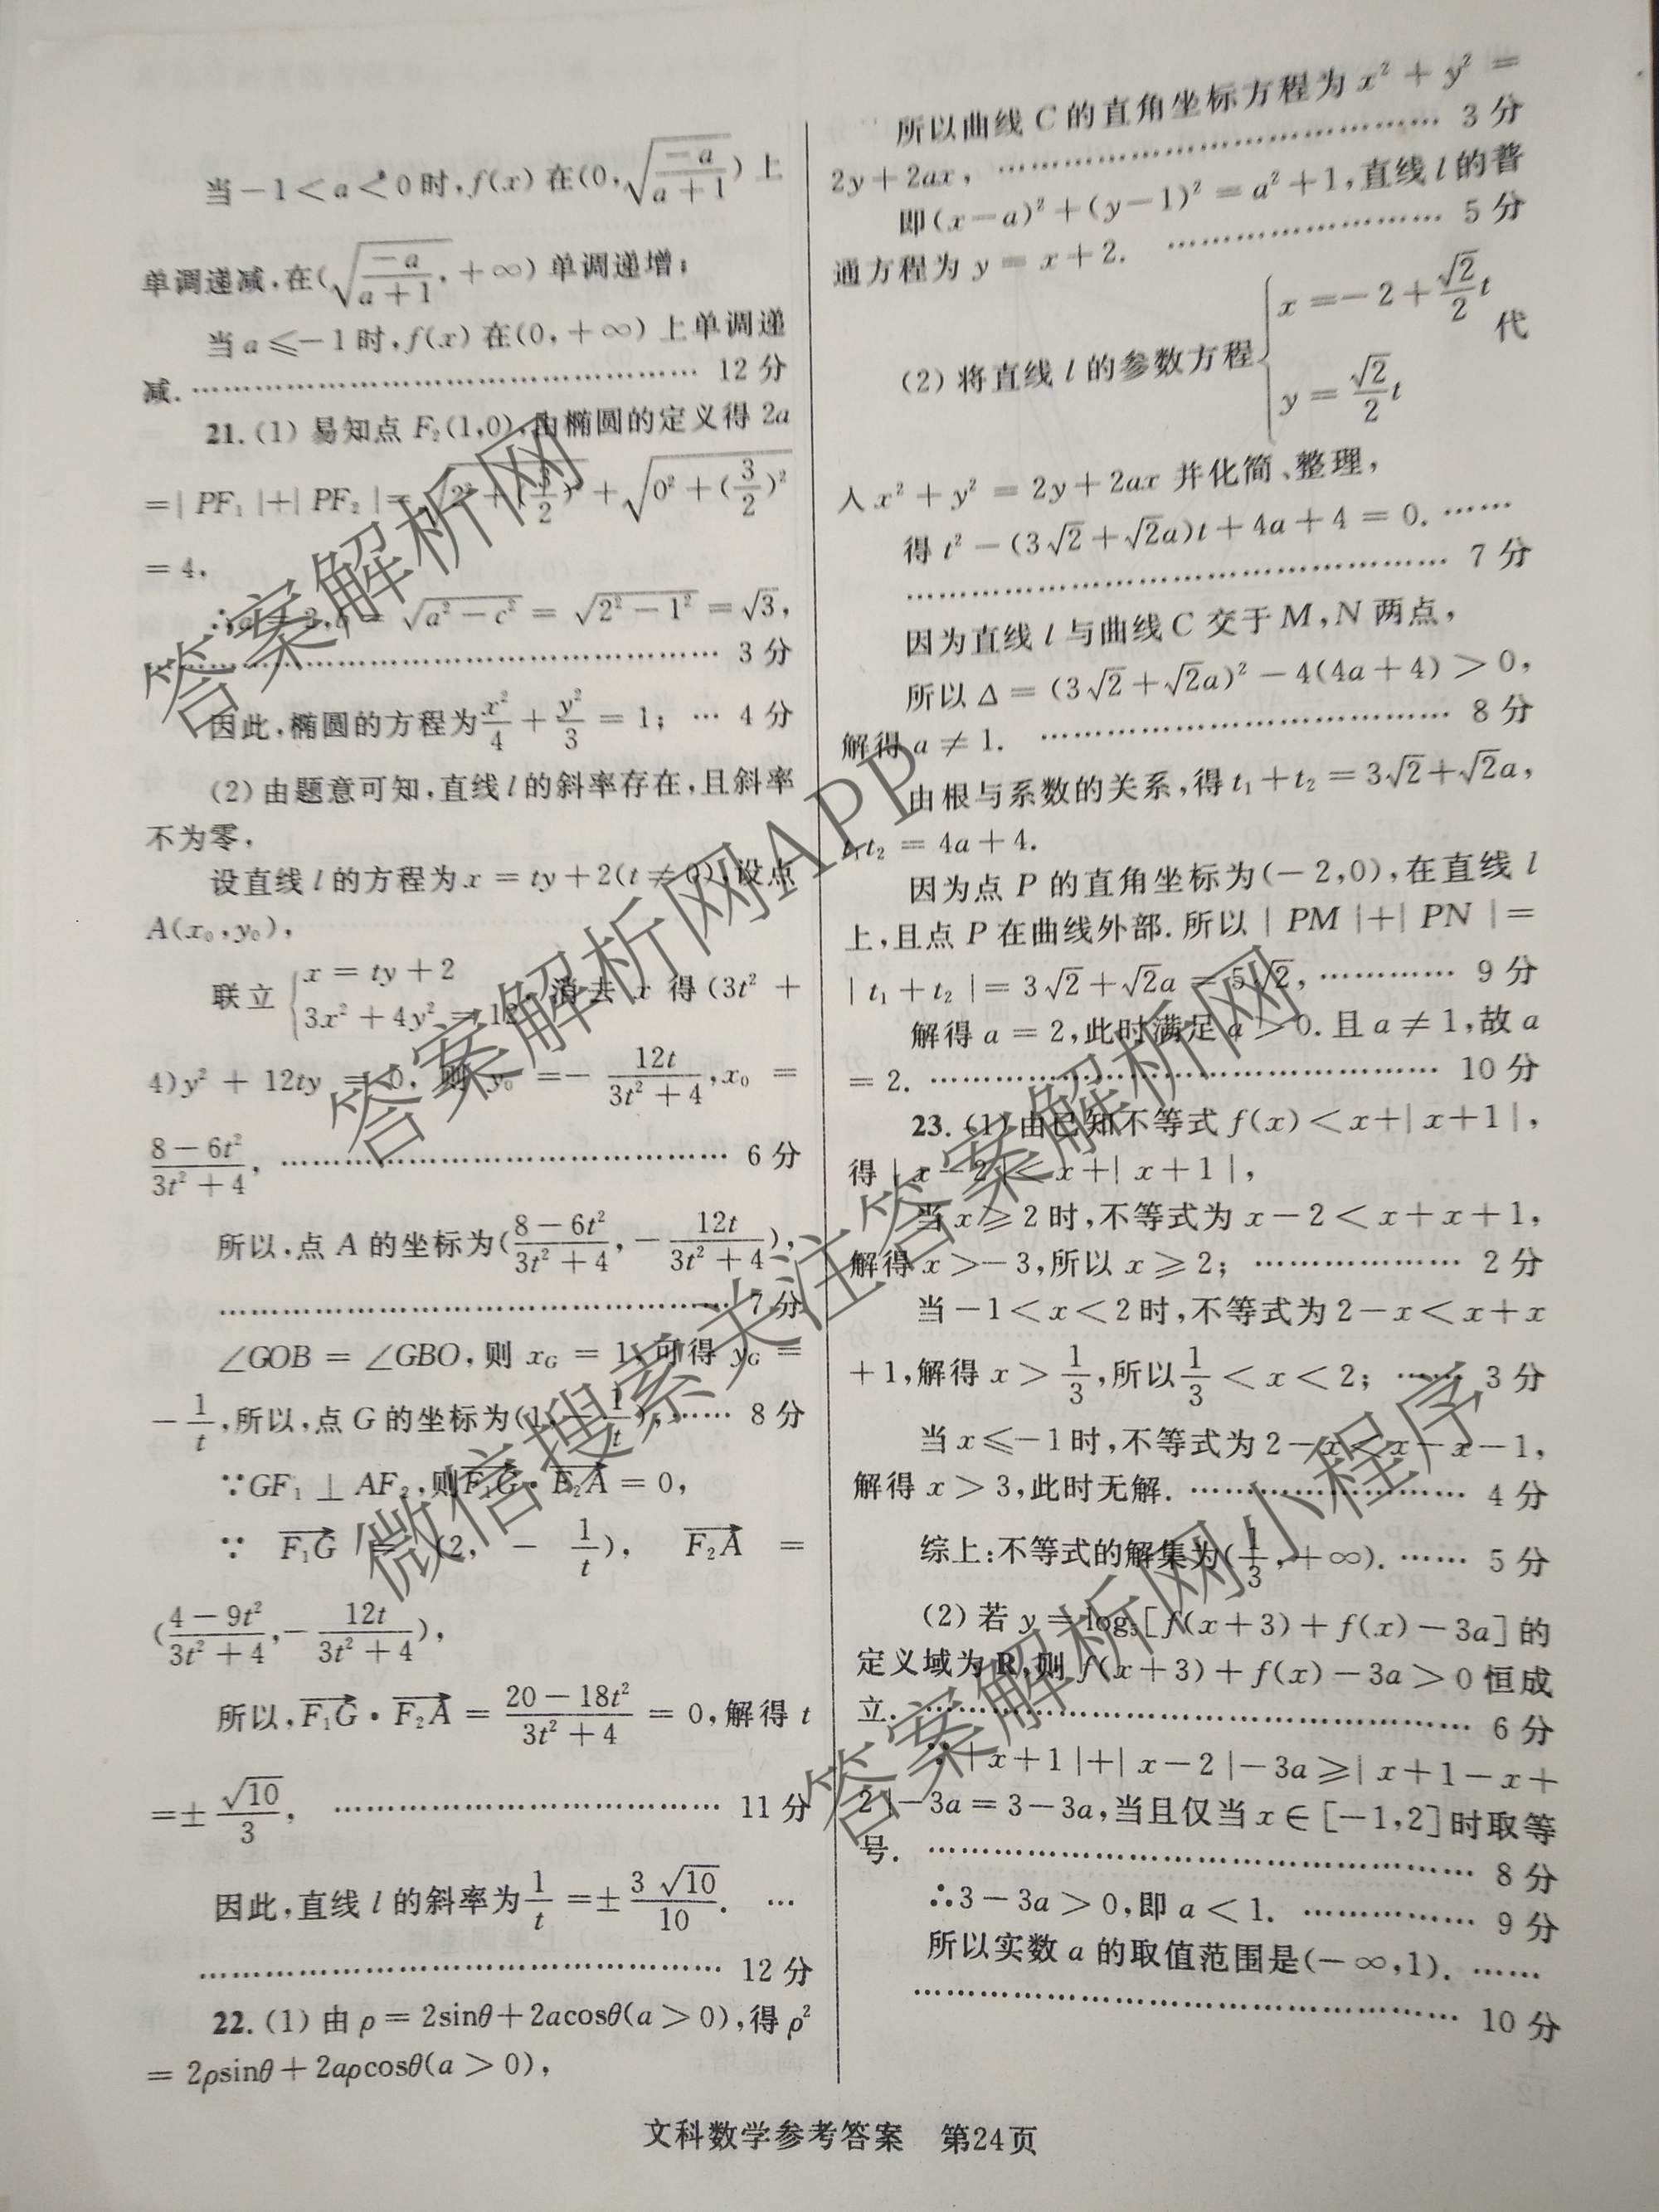 当-1<a<0时,f(x)在(0,√(-a/(a+1)))上
单调递减,在(√(-a/(a+1)),+∞)单调递增;
当a≤-1时,f(x)在(0,+∞)上单调递
减. …… 12分
21.(1)易知点F₂(1,0),由椭圆的定义得2a
=|PF₁|+|PF₂|=√(2²+(3/2)²)+√(0²+(3/2)²)
=4,
∴a=2,b=√(a²-c²)=√(2²-1²)=√3,
…… 3分
因此,椭圆的方程为x²/4+y²/3=1; … 4分
(2)由题意可知,直线l的斜率存在,且斜率
不为零,
设直线l的方程为x=ty+2(t≠0),设点
A(x₀,y₀),
联立{x=ty+2
3x²+4y²=12,消去x得(3t²+
4)y²+12ty=0,则y₀=-12t/(3t²+4),x₀=
(8-6t²)/(3t²+4), …… 6分
所以,点A的坐标为((8-6t²)/(3t²+4),-12t/(3t²+4)),
…… 7分
∠GOB=∠GBO,则x_G=1,可得y_G=
-1/t,所以,点G的坐标为(1,-1/t), …… 8分
∵GF₁⊥AF₂,则F₁G→·F₂A→=0,
∵F₁G→=(2,-1/t),F₂A→=
((4-9t²)/(3t²+4),-12t/(3t²+4)),
所以,F₁G→·F₂A→=(20-18t²)/(3t²+4)=0,解得t
=±√10/3, …… 11分
因此,直线l的斜率为1/t=±3√10/10. …
…… 12分
22.(1)由ρ=2sinθ+2acosθ(a>0),得ρ²
=2ρsinθ+2aρcosθ(a>0),
所以曲线C的直角坐标方程为x²+y²=
2y+2ax, …… 3分
即(x-a)²+(y-1)²=a²+1,直线l的普
通方程为y=x+2. …… 5分
(2)将直线l的参数方程{x=-2+(√2/2)t
y=(√2/2)t 代
入x²+y²=2y+2ax并化简、整理,
得t²-(3√2+√2a)t+4a+4=0. ……
…… 7分
因为直线l与曲线C交于M,N两点,
所以Δ=(3√2+√2a)²-4(4a+4)>0,
解得a≠1. …… 8分
由根与系数的关系,得t₁+t₂=3√2+√2a,
t₁t₂=4a+4.
因为点P的直角坐标为(-2,0),在直线l
上,且点P在曲线外部.所以|PM|+|PN|=
|t₁+t₂|=3√2+√2a=5√2, …… 9分
解得a=2,此时满足a>0.且a≠1,故a
=2. …… 10分
23.(1)由已知不等式f(x)<x+|x+1|,
得|x-2|<x+|x+1|,
当x≥2时,不等式为x-2<x+x+1,
解得x>-3,所以x≥2; …… 2分
当-1<x<2时,不等式为2-x<x+x
+1,解得x>1/3,所以1/3<x<2; …… 3分
当x≤-1时,不等式为2-x<x-x-1,
解得x>3,此时无解. …… 4分
综上:不等式的解集为(1/3,+∞). …… 5分
(2)若y=log₃[f(x+3)+f(x)-3a]的
定义域为R,则f(x+3)+f(x)-3a>0恒成
立. …… 6分
∵|x+1|+|x-2|-3a≥|x+1-x+
2|-3a=3-3a,当且仅当x∈[-1,2]时取等
号. …… 8分
∴3-3a>0,即a<1. …… 9分
所以实数a的取值范围是(-∞,1). ……
…… 10分
文科数学参考答案 第24页
答案解析网
答案解析网APP
微信搜索关注答案解析网
答案解析网小程序